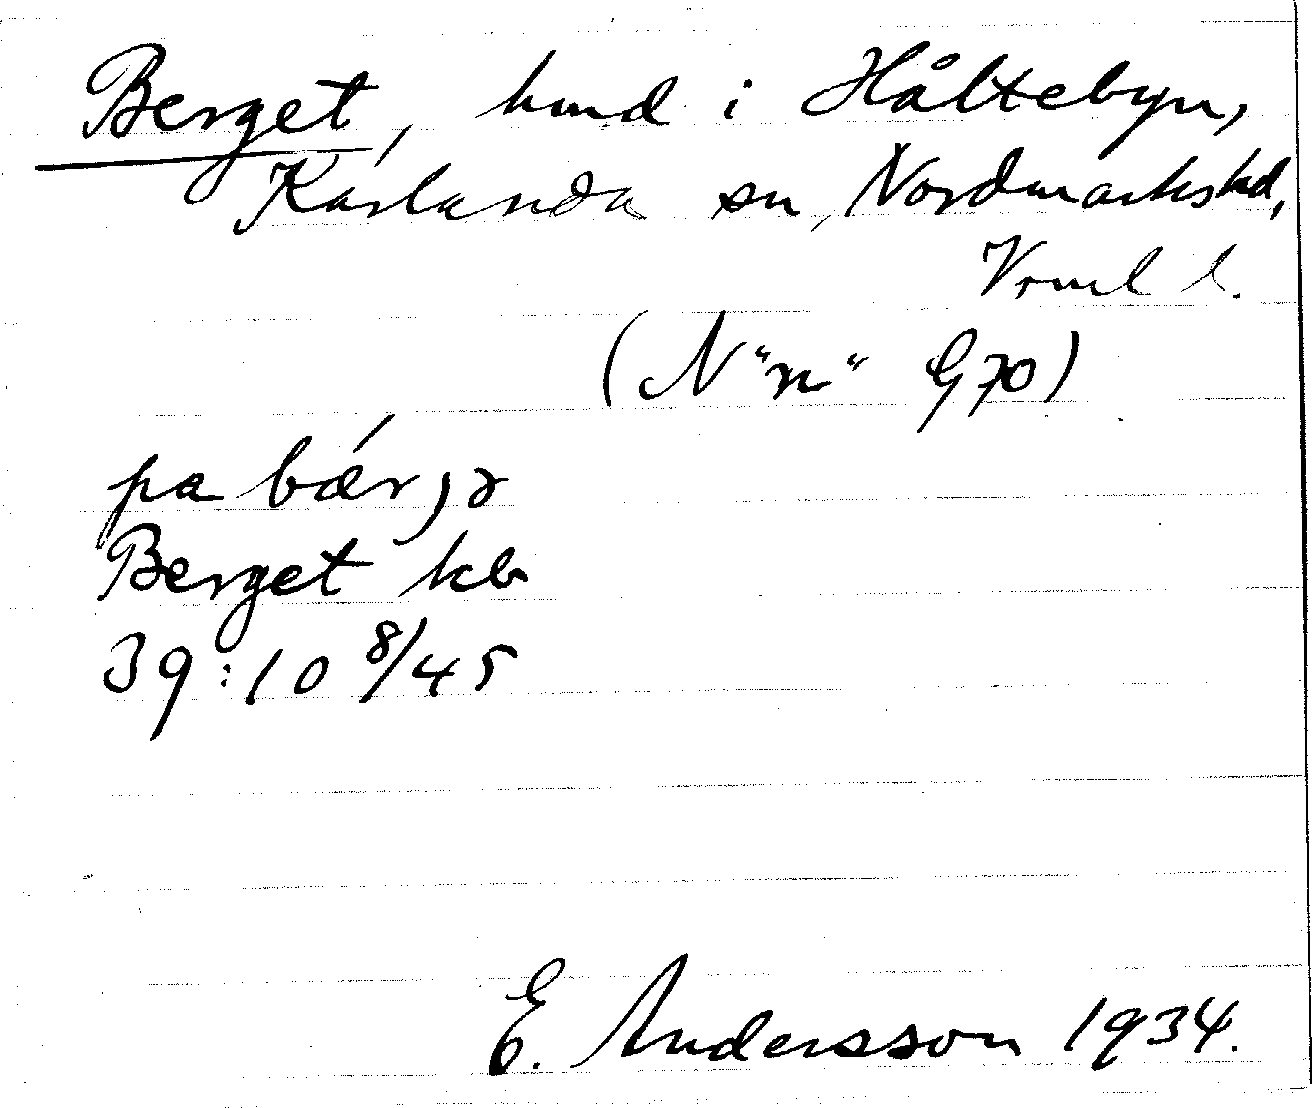 Berget, hmd i Håltebyn,
Karlanda sn, Nordmarks hd,
Vrml l.
(N "n" G70)
pa bær,ə
Berget kb
39:10 8/45
E. Andersson 1934.